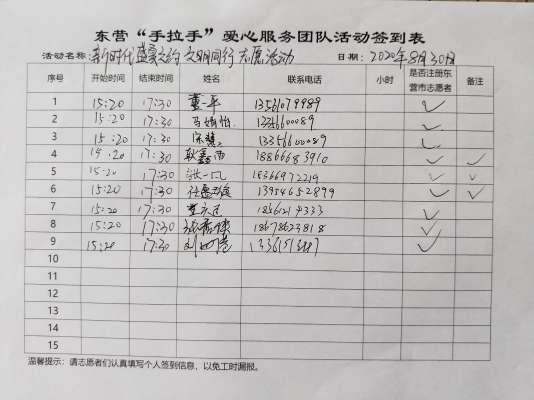 东营“手拉手”爱心服务团队活动签到表
活动名称：新时代 文明同行 志愿活动 日期：2020年8月30日
序号 开始时间 结束时间 姓名 联系电话 小时 是否注册东营市志愿者 备注
1 15:20 17:30 董一平 13561079989 ✓
2 15:20 17:30 13356600089 ✓
3 15:20 17:30 13356600089 ✓
4 14:20 17:30 18866683910 ✓ ✓
5 15:20 17:30 张一凡 18366972219 ✓ ✓
6 15:20 17:30 13954652899 ✓ ✓
7 15:20 17:30 ✓
8 15:20 17:30 18678623818 ✓
9 15:20 17:30 ✓
10
11
12
13
14
15
温馨提示：请志愿者们认真填写个人签到信息，以免工时漏报。